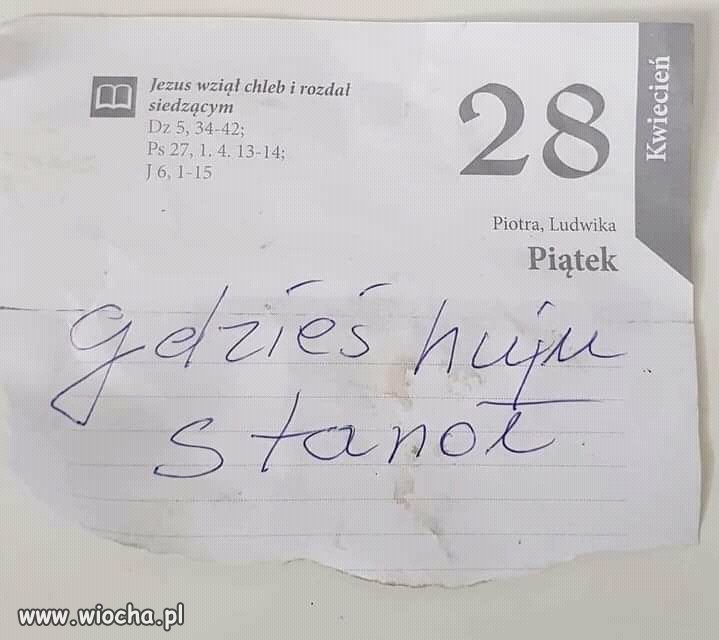 Jezus wziął chleb i rozdał
siedzącym
Dz 5, 34-42;
Ps 27, 1. 4. 13-14;
J 6, 1-15
28
Kwiecień
Piotra, Ludwika
Piątek
gdzieś huju
stanoł
www.wiocha.pl